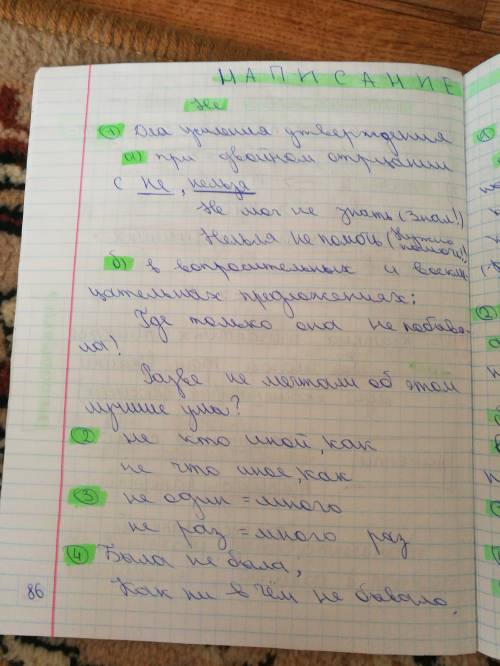 НАПИСАНИЕ
Не
1) Для усиления утверждения
а) при двойном отрицании
с не, нельзя
Не мог не знать (Знал!)
Нельзя не помочь (Нужно помочь!)
б) в вопросительных и воскли-
цательных предложениях:
Где только она не побыва-
ла!
Разве не мечтали об этом
лучшие умы?
2 не кто иной, как
не что иное, как
3 не один = много
не раз = много раз
4 Была не была;
Как ни в чём не бывало.
86